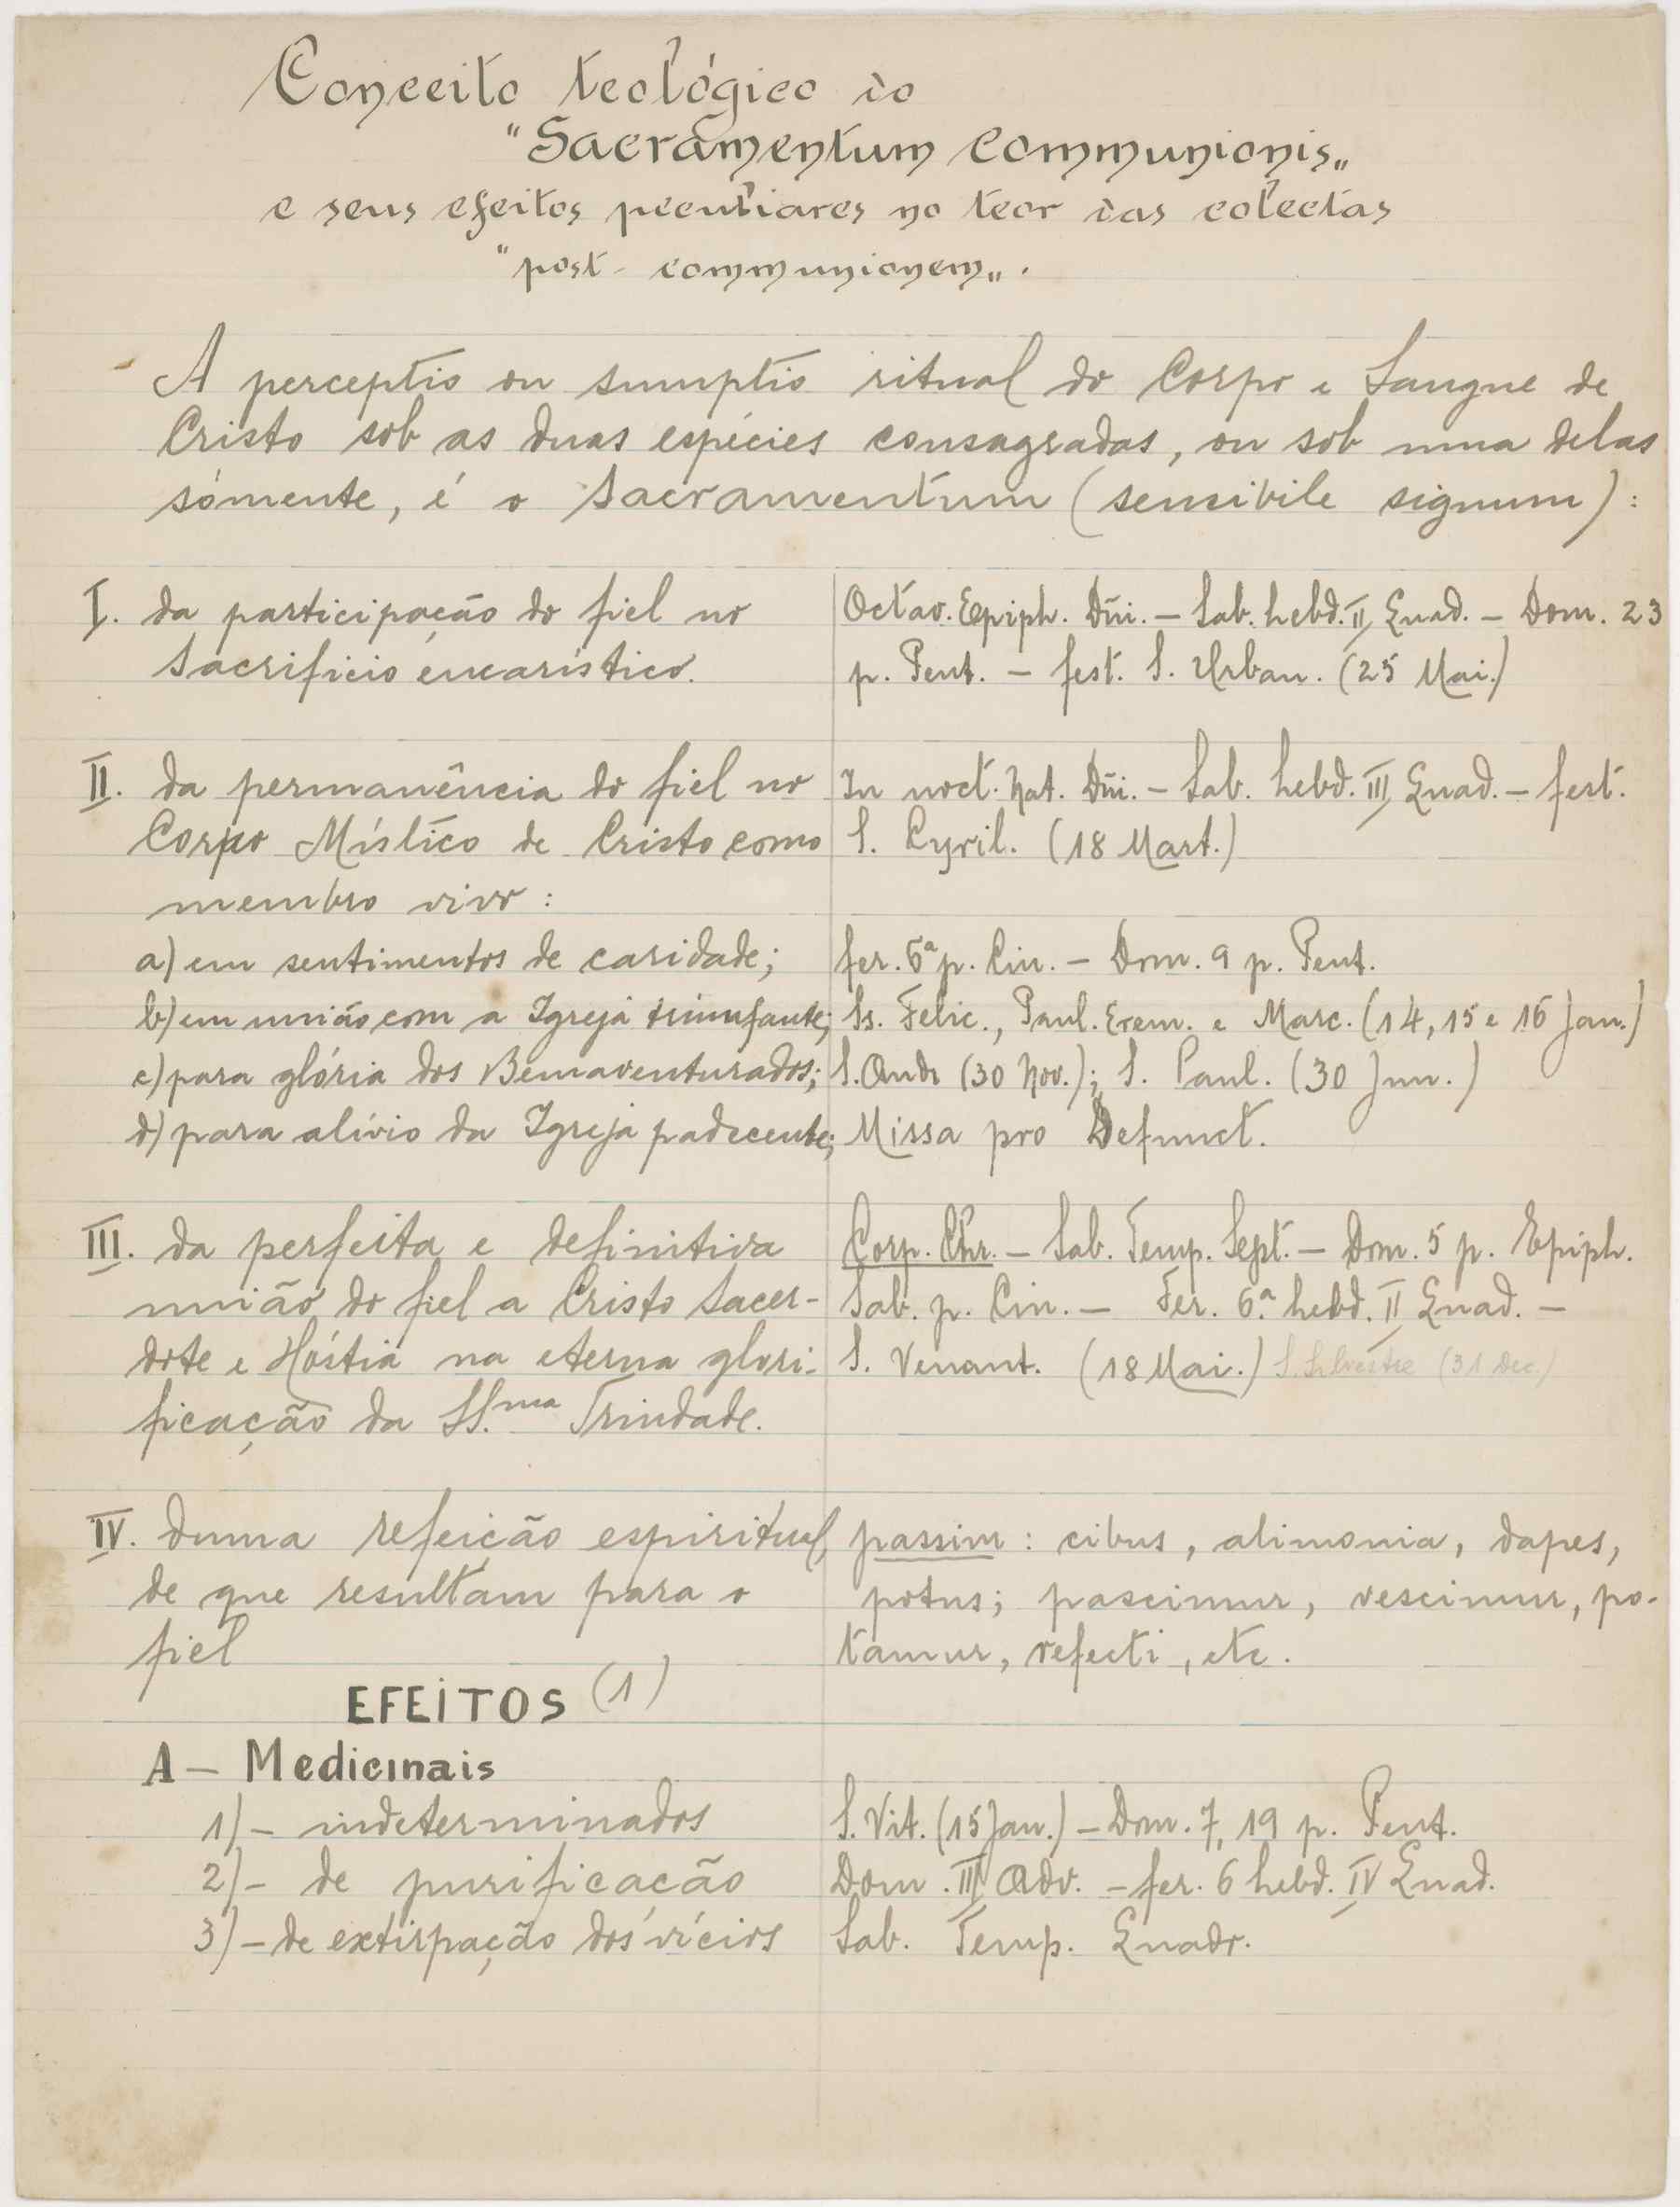 Conceito teológico do
"Sacramentum Communionis„
e seus efeitos peculiares no teor das colectas
"post-communionem„.
A perceptio ou sumptio ritual do Corpo e Sangue de
Cristo sob as duas espécies consagradas, ou sob uma delas
sòmente, é o Sacramentum (sensibile signum):
I. da participação do fiel no
Sacrifício eucarístico.
Octav. Epiph. Dñi. – Sab. hebd. II Quad. – Dom. 23
p. Pent. – fest. S. Urban. (25 Mai.)
II. da permanência do fiel no
Corpo Místico de Cristo como
membro vivo:
In noct. Nat. Dñi. – Sab. hebd. III Quad. – fest.
S. Cyril. (18 Mart.)
a) em sentimentos de caridade;
fer. 6ª p. Cin. – Dom. 9 p. Pent.
b) em união com a Igreja triunfante;
Ss. Felic., Paul. Erem. e Marc. (14, 15 e 16 Jan.)
c) para glória dos Bemaventurados;
S. Andr (30 Nov.); S. Paul. (30 Jun.)
d) para alívio da Igreja padecente;
Missa pro Defunct.
III. da perfeita e definitiva
união do fiel a Cristo Sacer-
dote e Hóstia na eterna glori-
ficação da SS.ma Trindade.
Corp. Chr. – Sab. Temp. Sept. – Dom. 5 p. Epiph.
Sab. p. Cin. – Fer. 6.ª hebd. II Quad. –
S. Venant. (18 Mai.) S. Silvestre (31 Dec.)
IV. duma refeição espiritual,
de que resultam para o
fiel
passim: cibus, alimonia, dapes,
potus; pascimur, vescimur, po-
tamur, refecti, etc.
EFEITOS (1)
A – Medicinais
1) – indeterminados
S. Vit. (15 Jan.) – Dom. 7, 19 p. Pent.
2) – de purificação
Dom. III Adv. – fer. 6 hebd. IV Quad.
3) – de extirpação dos vícios
Sab. Temp. Quadr.